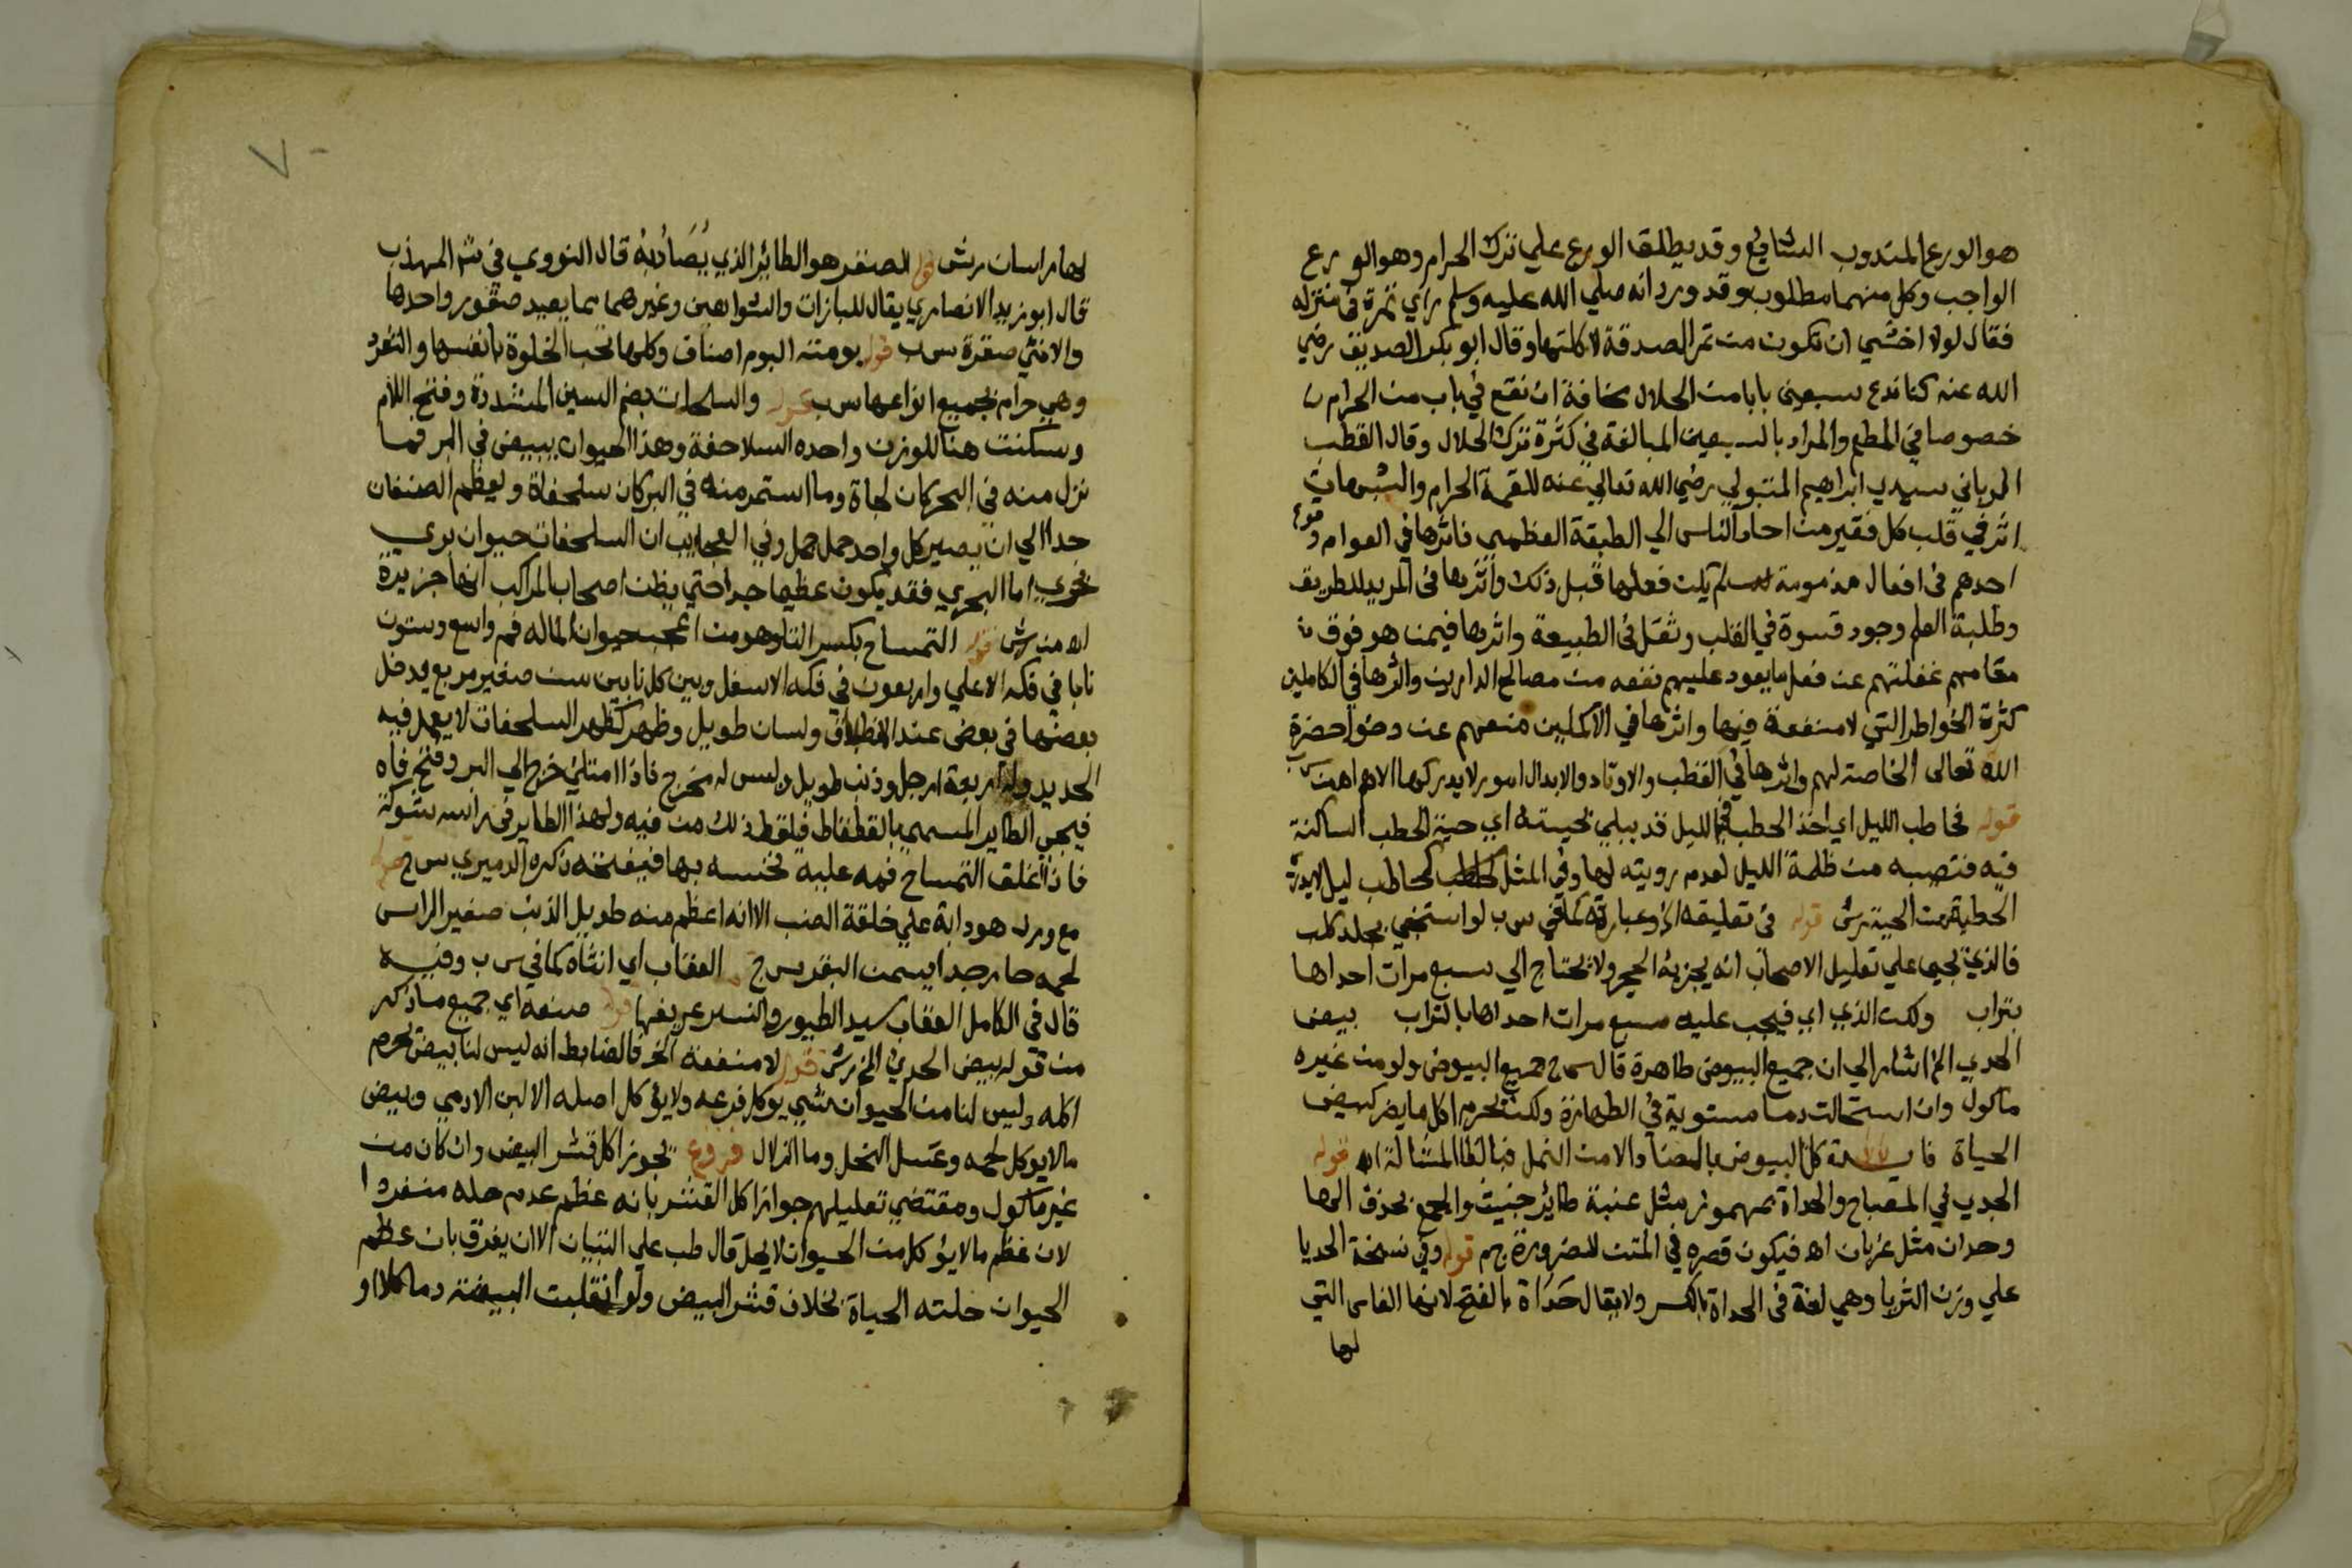 هو الورع المندوب الشافع وقد يطلق الورع علي ترك الحرام وهو الورع
الواجب وكل منهما مطلوب وقد ورد انه صلي الله عليه وسلم راي تمرة في منزله
فقال لولا اخشي ان تكون من تمر الصدقة لاكلتها وقال ابو بكر الصديق رضي
الله عنه كنا ندع سبعين بابا من الحلال مخافة ان نقع في باب من الحرام
خصوصا في المطعم والمراد بالسبعين المبالغة في كثرة ترك الحلال وقال القطب
الرباني سيدي ابراهيم المتبولي رضي الله تعالي عنه للقمة الحرام والشبهات
اثر في قلب كل فقير من احاد الناس الي الطبقة العظمي فاثرها في العوام وقوع
احدهم في افعال مذمومة لم يكن فعلها قبل ذلك واثرها في المريد للطريق
وطلبة العلم وجود قسوة في القلب وثقل في الطبيعة واثرها فيمن هو فوق
مقامهم غفلتهم عن فعل ما يعود عليهم نفعه من مصالح الدارين واثرها في الكاملين
كثرة الخواطر التي لا منفعة فيها واثرها في الاكملين منعهم عن دخول حضرة
الله تعالى الخاصة لهم واثرها في القطب والاوتاد والابدال امور لا يدركها الا هم اهـ س ب
قوله كحاطب الليل اي اخذ الحطب في الليل قد يبلي بحيته اي حية الحطب الساكنة
فيه فتصيبه من ظلمة الليل لعدم رويته لها وفي المثل كحاطب ليل لا يدري
الحطبة من الحية رش قوله في تعليقه الخ وعبارته كما في س ب لو استنجي بجلد كلب
فالذي يجيء علي تعليل الاصحاب انه يجزئه الحجر ولا يحتاج الي سبع مرات احداها
بتراب ولكن الذي اي فيجب عليه سبع مرات احداها بالتراب بيض
الحدي الخ اشار الي ان جميع البيوض طاهرة قال س ج جميع البيوض ولو من غير
ماكول وان استحالت دما مستوية في الطهارة ولكن يحرم اكل ما يضر كبيض
الحياة فايدة كل البيوض بالضاد الا من النمل فبالظا المشالة اهـ قوله
الحدي في المصباح والحداة مهموز مثل عنبة طاير خبيث والجمع بحذف الها
وحدان مثل غزبان اهـ فيكون قصره في المتن للضرورة ج م قوله وفي نسخة الحديا
علي وزن الثريا وهي لغة في الحداة بالكسر ولا يقال حَدَاة بالفتح لانها الفاس التي
لها
لها راسان رش قوله الصقر هو الطائر الذي يُصَادُ بِهُ قال النووي في شم المهذب
قال ابو زيد الانصاري يقال للبازات والشواهين وغيرهما مما يصيد صقور واحدها
والانثي صقرة س ب قوله بومته البوم اصناف وكلها تحب الخلوة بانفسها والتفرد
وهي حرام بجميع انواعها س ب قوله والسلحفات بضم السين المشددة وفتح اللام
وسكنت هنا للوزن واحده السلاحفة وهذا الحيوان يبيض في البر فما
نزل منه في البحر كان لجاة وما استمر منه في البر كان سلحفاة ويعظم الصنفان
جدا الي ان يصير كل واحد حمل جمل وفي العجايب ان السلحفات حيوان بري
بحري اما البحري فقد يكون عظيما جدا حتي يظن اصحاب المراكب انها جزيرة
اهـ من رش قوله التمساح بكسر التا وهو من اعجب حيوان الما له فم واسع وستون
نابا في فكه الاعلي واربعون في فكه الاسفل وبين كل نابين سن صغير مربع يدخل
بعضها في بعض عند الانطباق ولسان طويل وظهر كظهر السلحفات لا يعمل فيه
الحديد وله اربعة ارجل وذنب طويل وليس له مخرج فاذا امتلئ خرج الي البر وفتح فاه
فيجي الطاير المسمي بالقطقاط فيلقط ذلك من فيه ولهذا الطاير في راسه شوكة
فاذا اغلق التمساح فمه عليه نخسه بها فيفتحه ذكره الدميري س ج قوله
مع ورل هو دابة علي خلقة الضب الا انه اعظم منه طويل الذنب صغير الراس
لحمه حار جدا يسمن البقر س ج العقاب اي انثاه كما في س ب وفيه
قال في الكامل العقاب سيد الطيور والنسر عريفها قوله صنعه اي جميع ما ذكر
من قوله بيض الحدي الخ رش قوله لا منفعة الخ فالضابط انه ليس لنا بيض يحرم
اكله وليس لنا من الحيوان شي يوكل فرعه ولا يؤكل اصله الا لبن الادمي وبيض
ما لا يوكل لحمه وعسل النحل وما الزلال فروع يجوز اكل قشر البيض وان كان من
غير ماكول ومقتضي تعليلهم جواز اكل القشر بانه عظم عدم حله منفردا
لان عظم ما لا يؤكل من الحيوان لا يحل قال طب علي التبيان الا ان يفرق بان عظم
الحيوان حلته الحياة بخلاف قشر البيض ولو انقلبت البيضة دما كلا او